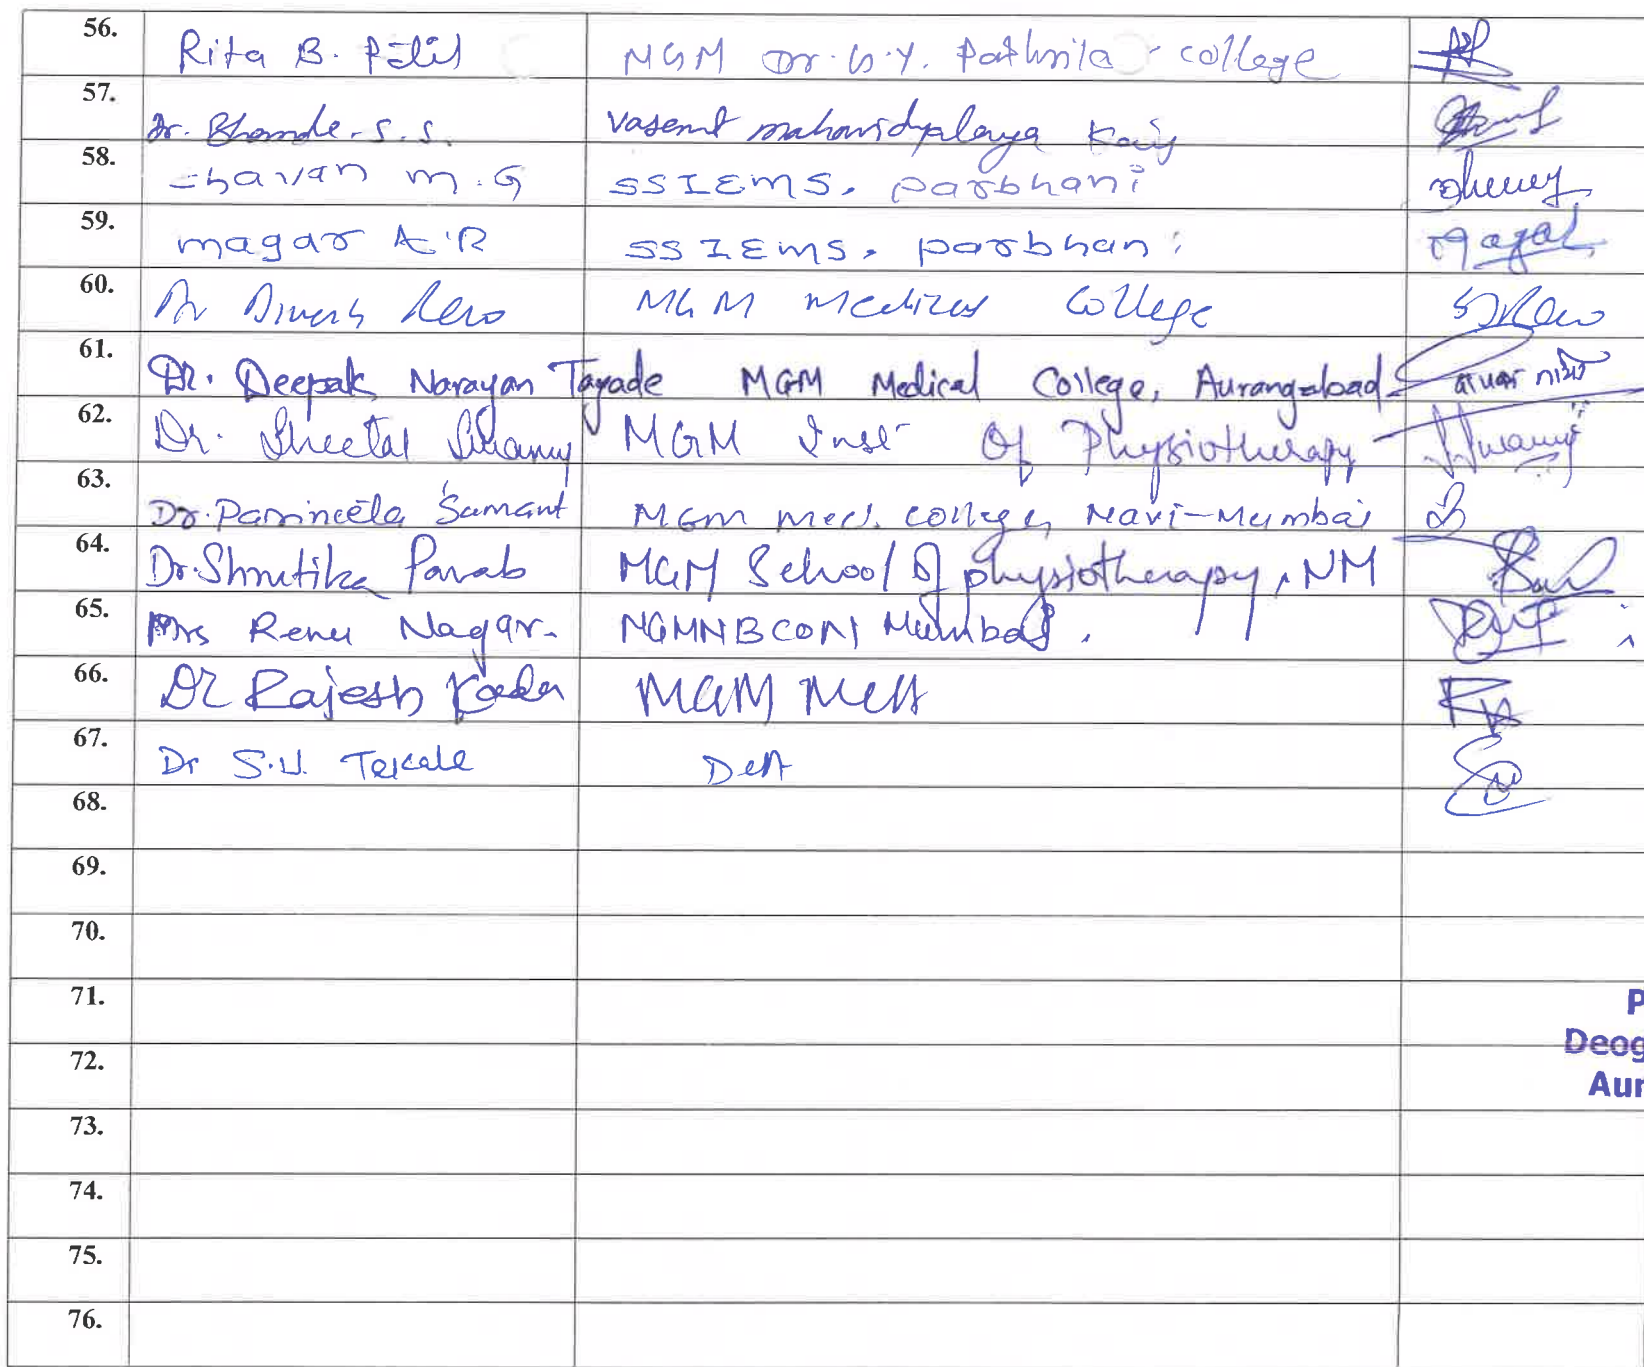 56. Rita B. Patil MGM Dr. G.Y. Pathrikar college
57. Dr. Bhande. S. S. Vasant mahavidyalaya Kaij
58. chavan m.G SSIEMS. parbhani
59. magar A.R SSIEMS. parbhani
60. Dr Dinesh MGM Medical College
61. Dr. Deepak Narayan Tayade MGM Medical College, Aurangabad
62. Dr. Sheetal Swamy MGM Inst Of Physiotherapy
63. Dr. Parineeta Samant MGM med. college, Navi-Mumbai
64. Dr. Shrutika Parab MGM School of physiotherapy, NM
65. Mrs Renu Nagar. MGMNBCON Mumbai.
66. Dr Rajesh Kadam MGM
67. Dr S.U. Tekale
68.
69.
70.
71. P
Deog
72.
Aur
73.
74.
75.
76.